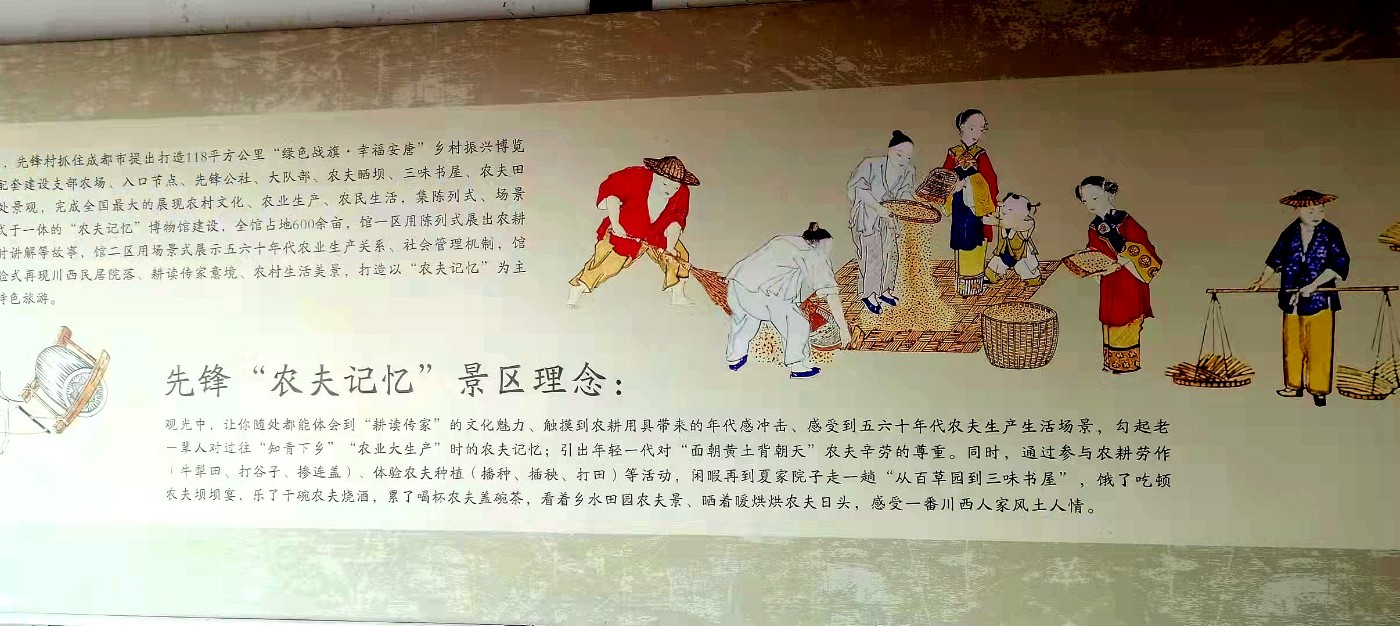 ，先锋村抓住成都市提出打造118平方公里“绿色战旗·幸福安唐”乡村振兴博览
配套建设支部农场、入口节点、先锋公社、大队部、农夫晒坝、三味书屋、农夫田
处景观，完成全国最大的展现农村文化、农业生产、农民生活，集陈列式、场景
式于一体的“农夫记忆”博物馆建设，全馆占地600余亩，馆一区用陈列式展出农耕
时讲解等故事，馆二区用场景式展示五六十年代农业生产关系、社会管理机制，馆
验式再现川西民居院落、耕读传家意境、农村生活美景，打造以“农夫记忆”为主
特色旅游。
先锋“农夫记忆”景区理念：
观光中，让你随处都能体会到“耕读传家”的文化魅力、触摸到农耕用具带来的年代感冲击、感受到五六十年代农夫生产生活场景，勾起老
一辈人对过往“知青下乡”“农业大生产”时的农夫记忆；引出年轻一代对“面朝黄土背朝天”农夫辛劳的尊重。同时，通过参与农耕劳作
（牛犁田、打谷子、掺连盖）、体验农夫种植（播种、插秧、打田）等活动，闲暇再到夏家院子走一趟“从百草园到三味书屋”，饿了吃顿
农夫坝坝宴，乐了干碗农夫烧酒，累了喝杯农夫盖碗茶，看着乡水田园农夫景、晒着暖烘烘农夫日头，感受一番川西人家风土人情。